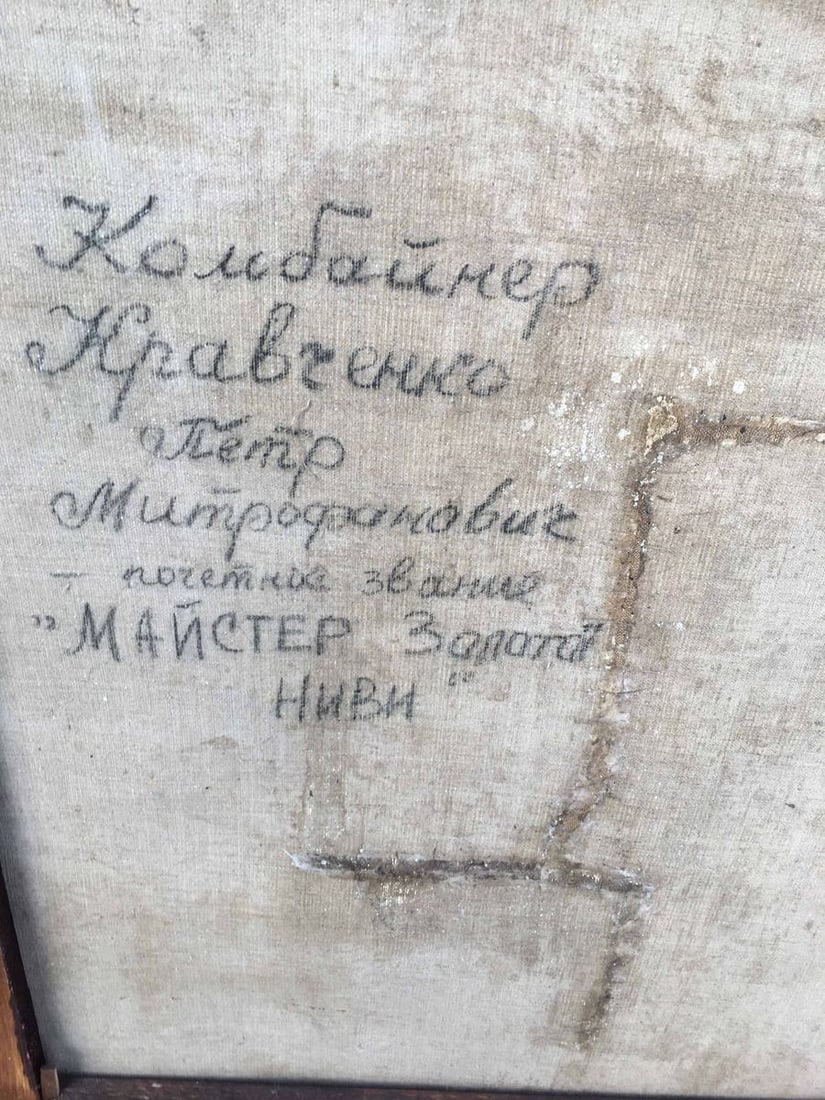 Комбайнер
Кравченко
Пётр
Митрофанович
– почетное звание
"МАЙСТЕР Золотої
НИВИ"